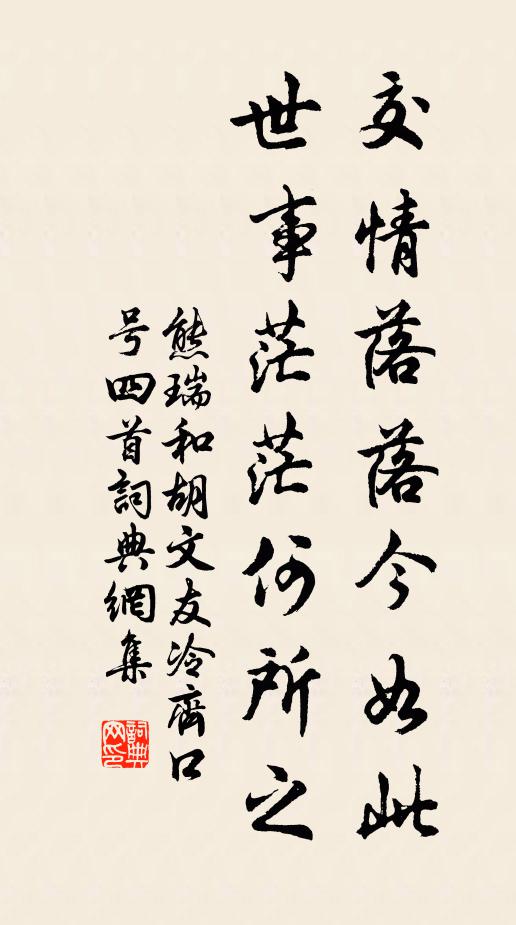 交情落落今如此
世事茫茫何所之
熊瑞和胡文友冷齊口
号四首詞典網集
詞典
网印